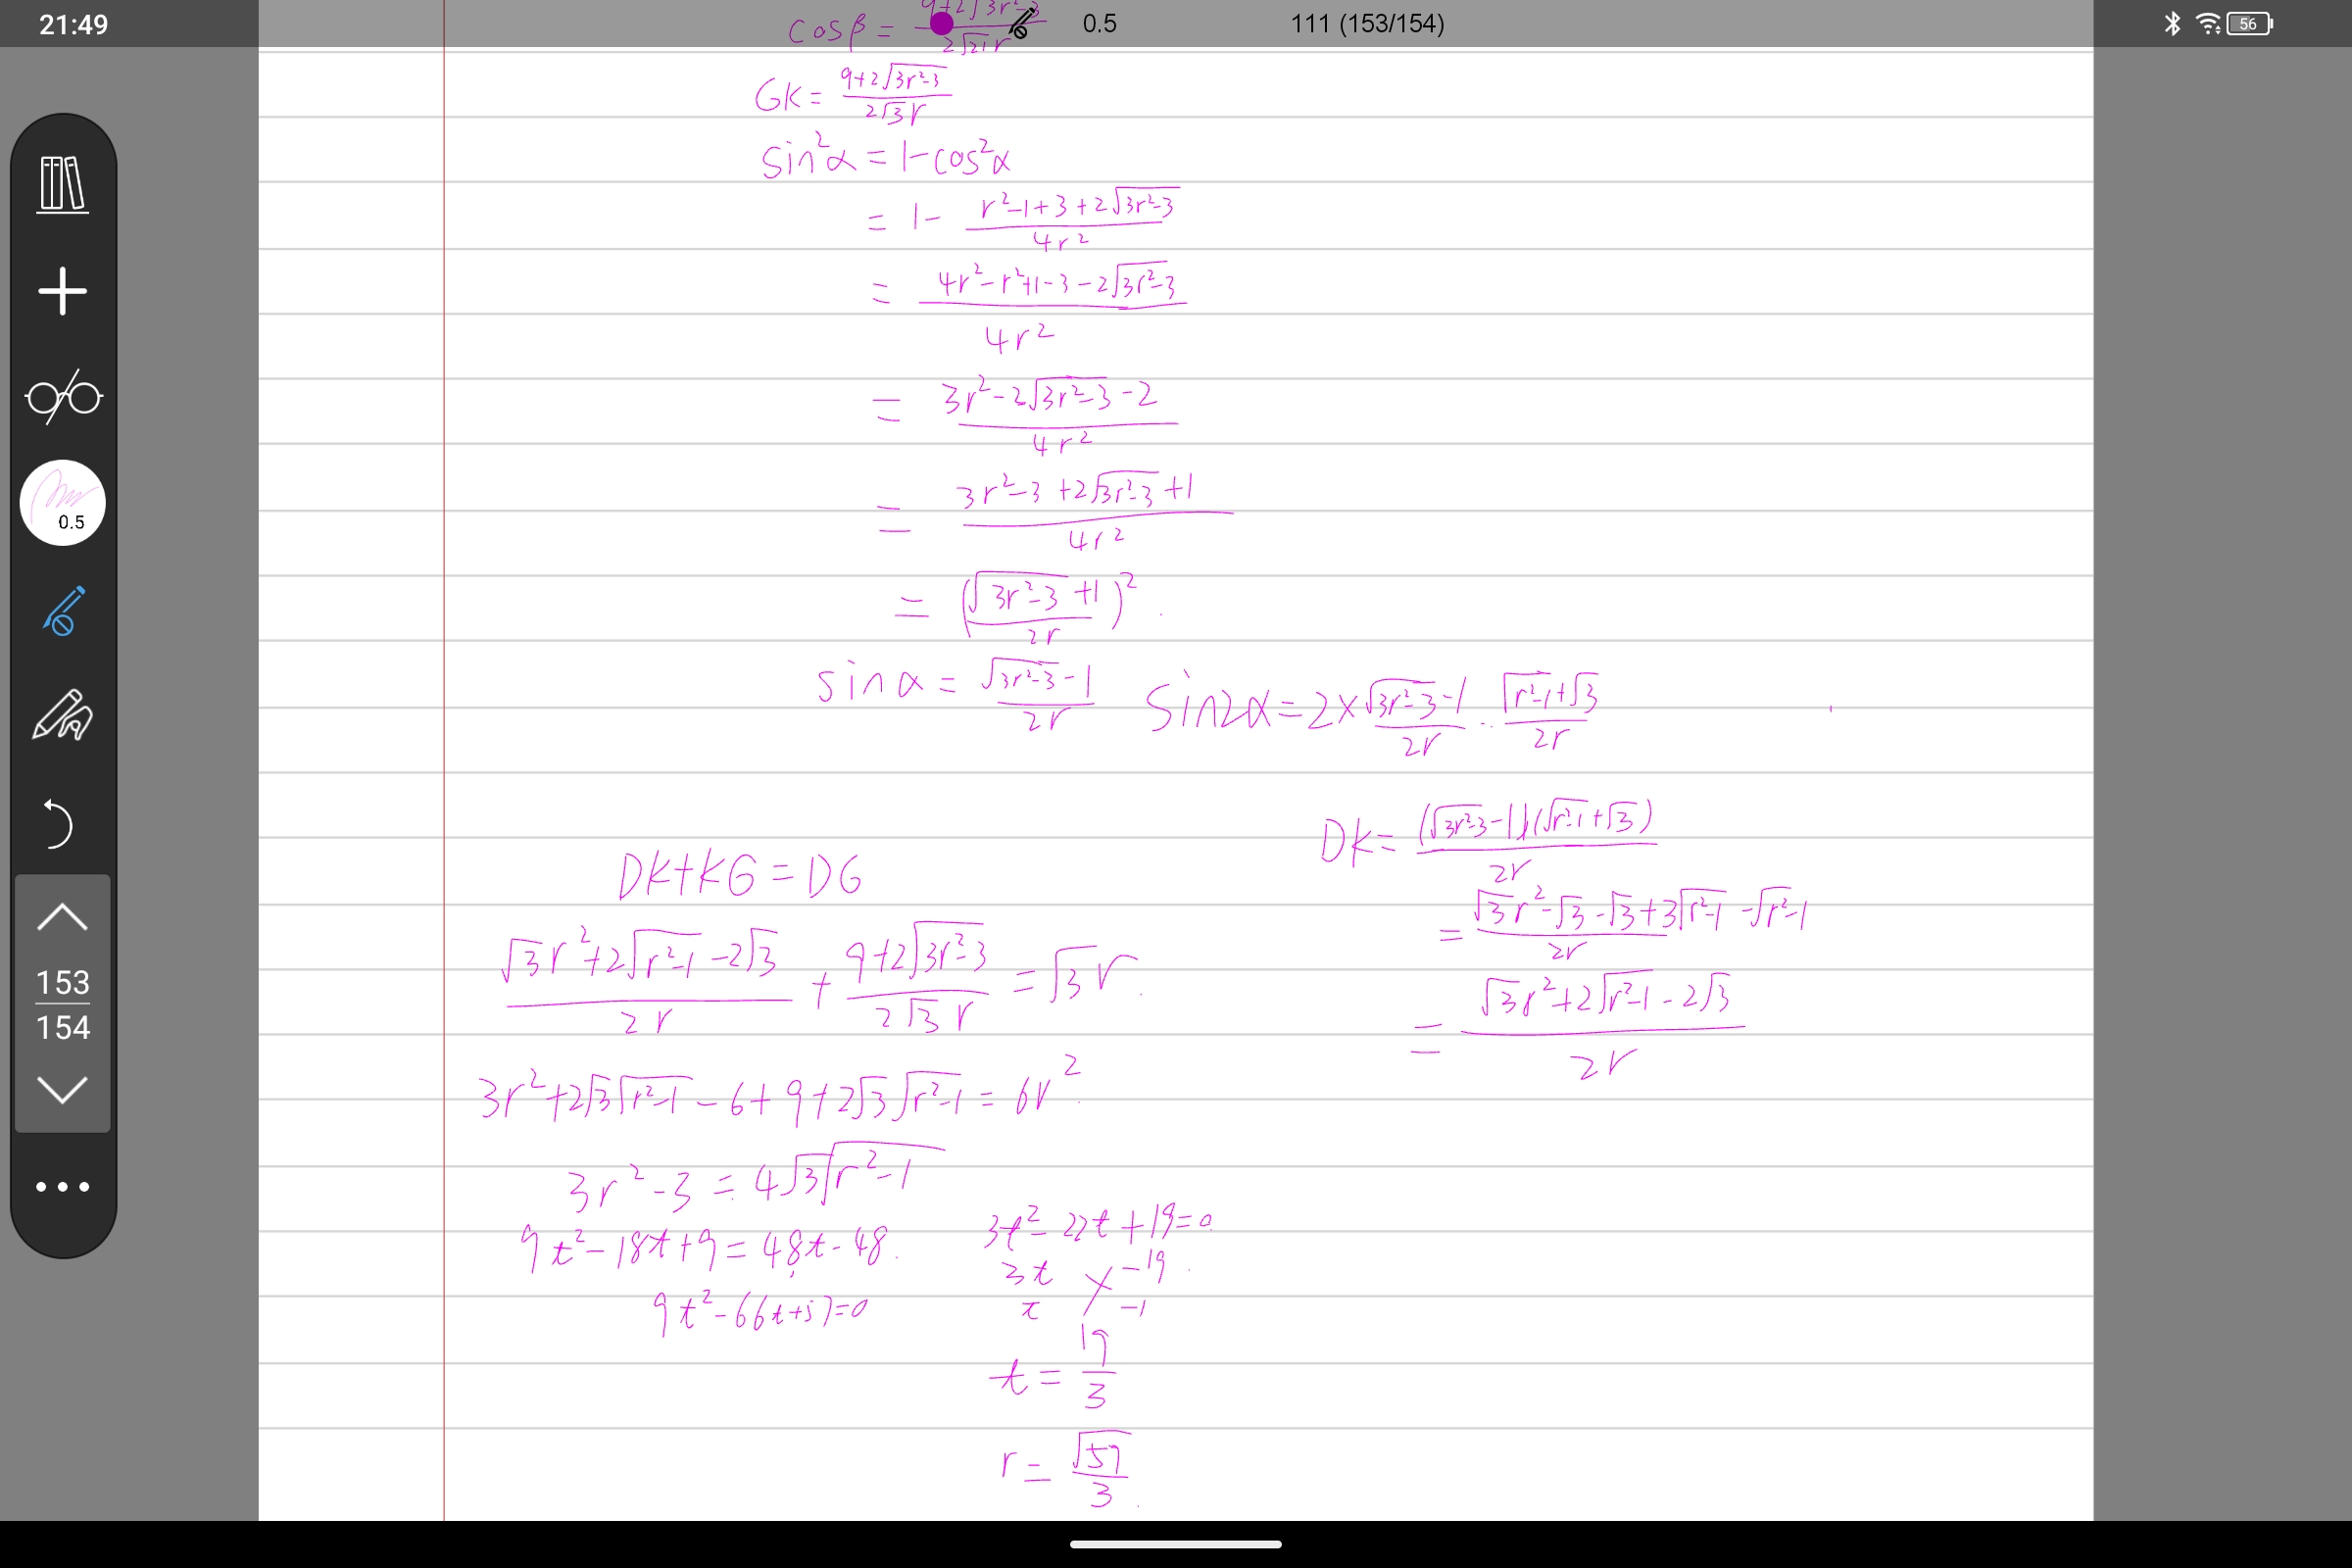 21:49
0.5
111 (153/154)
56
cos β = (9+2√(3r²-3))/(2√21 r)
GK = (9+2√(3r²-3))/(2√3 r)
sin²α = 1-cos²α
= 1- (r²-1+3+2√(3r²-3))/(4r²)
= (4r²-r²+1-3-2√(3r²-3))/(4r²)
= (3r²-2√(3r²-3)-2)/(4r²)
0.5
= (3r²-3+2√(3r²-3)+1)/(4r²)
= ((√(3r²-3)+1)/(2r))².
sin α = (√(3r²-3)-1)/(2r) sin2α = 2×(√(3r²-3)-1)/(2r) · (√(r²-1)+√3)/(2r)
DK = ((√(3r²-3)-1)(√(r²-1)+√3))/(2r)
= (√3r²-√3-√3+3√(r²-1)-√(r²-1))/(2r)
= (√3r²+2√(r²-1)-2√3)/(2r)
DK+KG = DG
(√3r²+2√(r²-1)-2√3)/(2r) + (9+2√(3r²-3))/(2√3 r) = √3r.
153
154
3r²+2√3√(r²-1)-6+9+2√3√(r²-1) = 6r².
3r²-3 = 4√3√(r²-1)
9t²-18t+9 = 48t-48.
9t²-66t+57=0
3t²-22t+19=0
3t -19
t -1
t = 19/3
r = √57/3